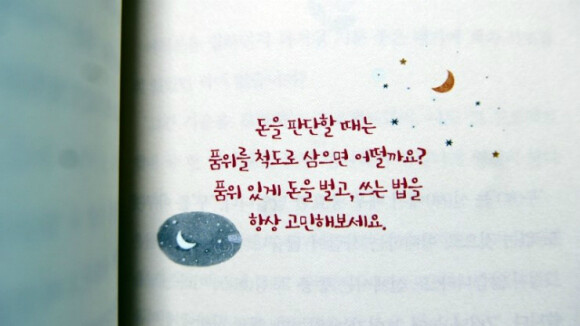 돈을 판단할 때는
품위를 척도로 삼으면 어떨까요?
품위 있게 돈을 벌고, 쓰는 법을
항상 고민해보세요.